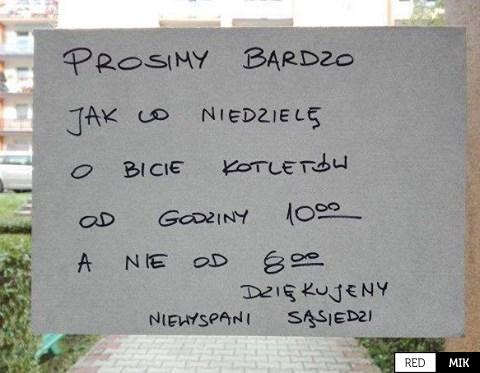 PROSIMY BARDZO
JAK CO NIEDZIELĘ
O BICIE KOTLETÓW
OD GODZINY 10⁰⁰
A NIE OD 6⁰⁰
DZIĘKUJEMY
NIEWYSPANI SĄSIEDZI
RED MIK